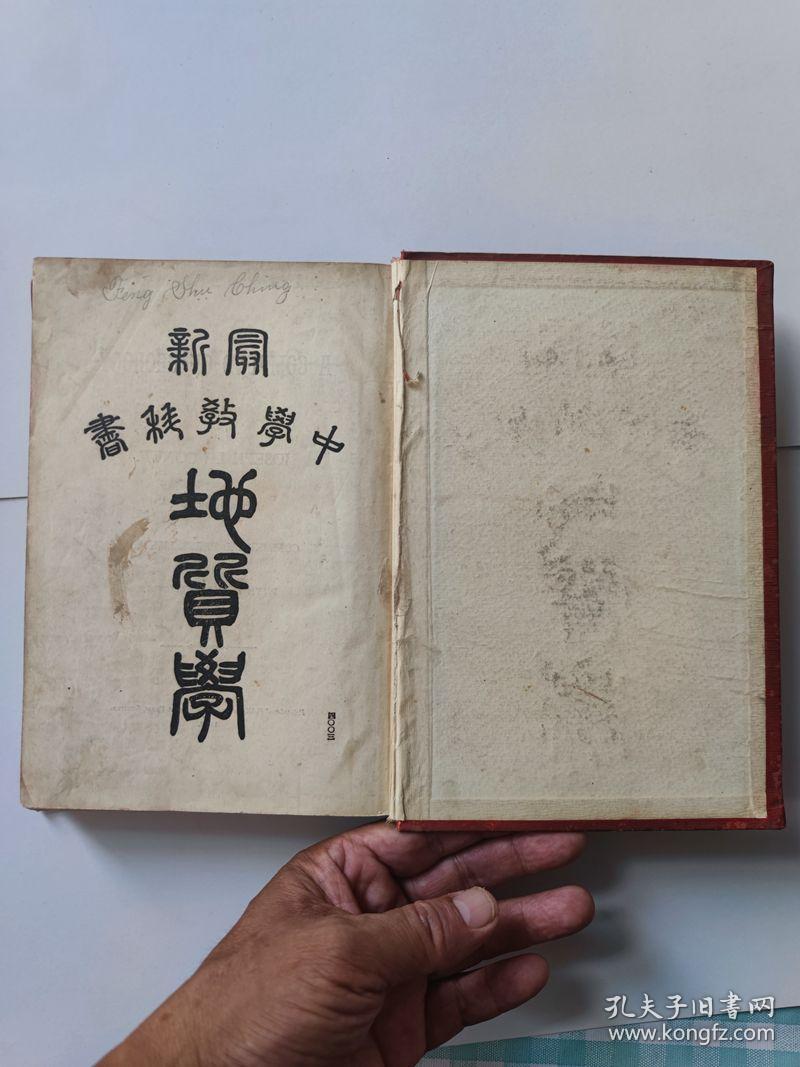 Feng Shu Ching
最新
中學教科書
地質學
四〇〇三
孔夫子旧書网
www.kongfz.com